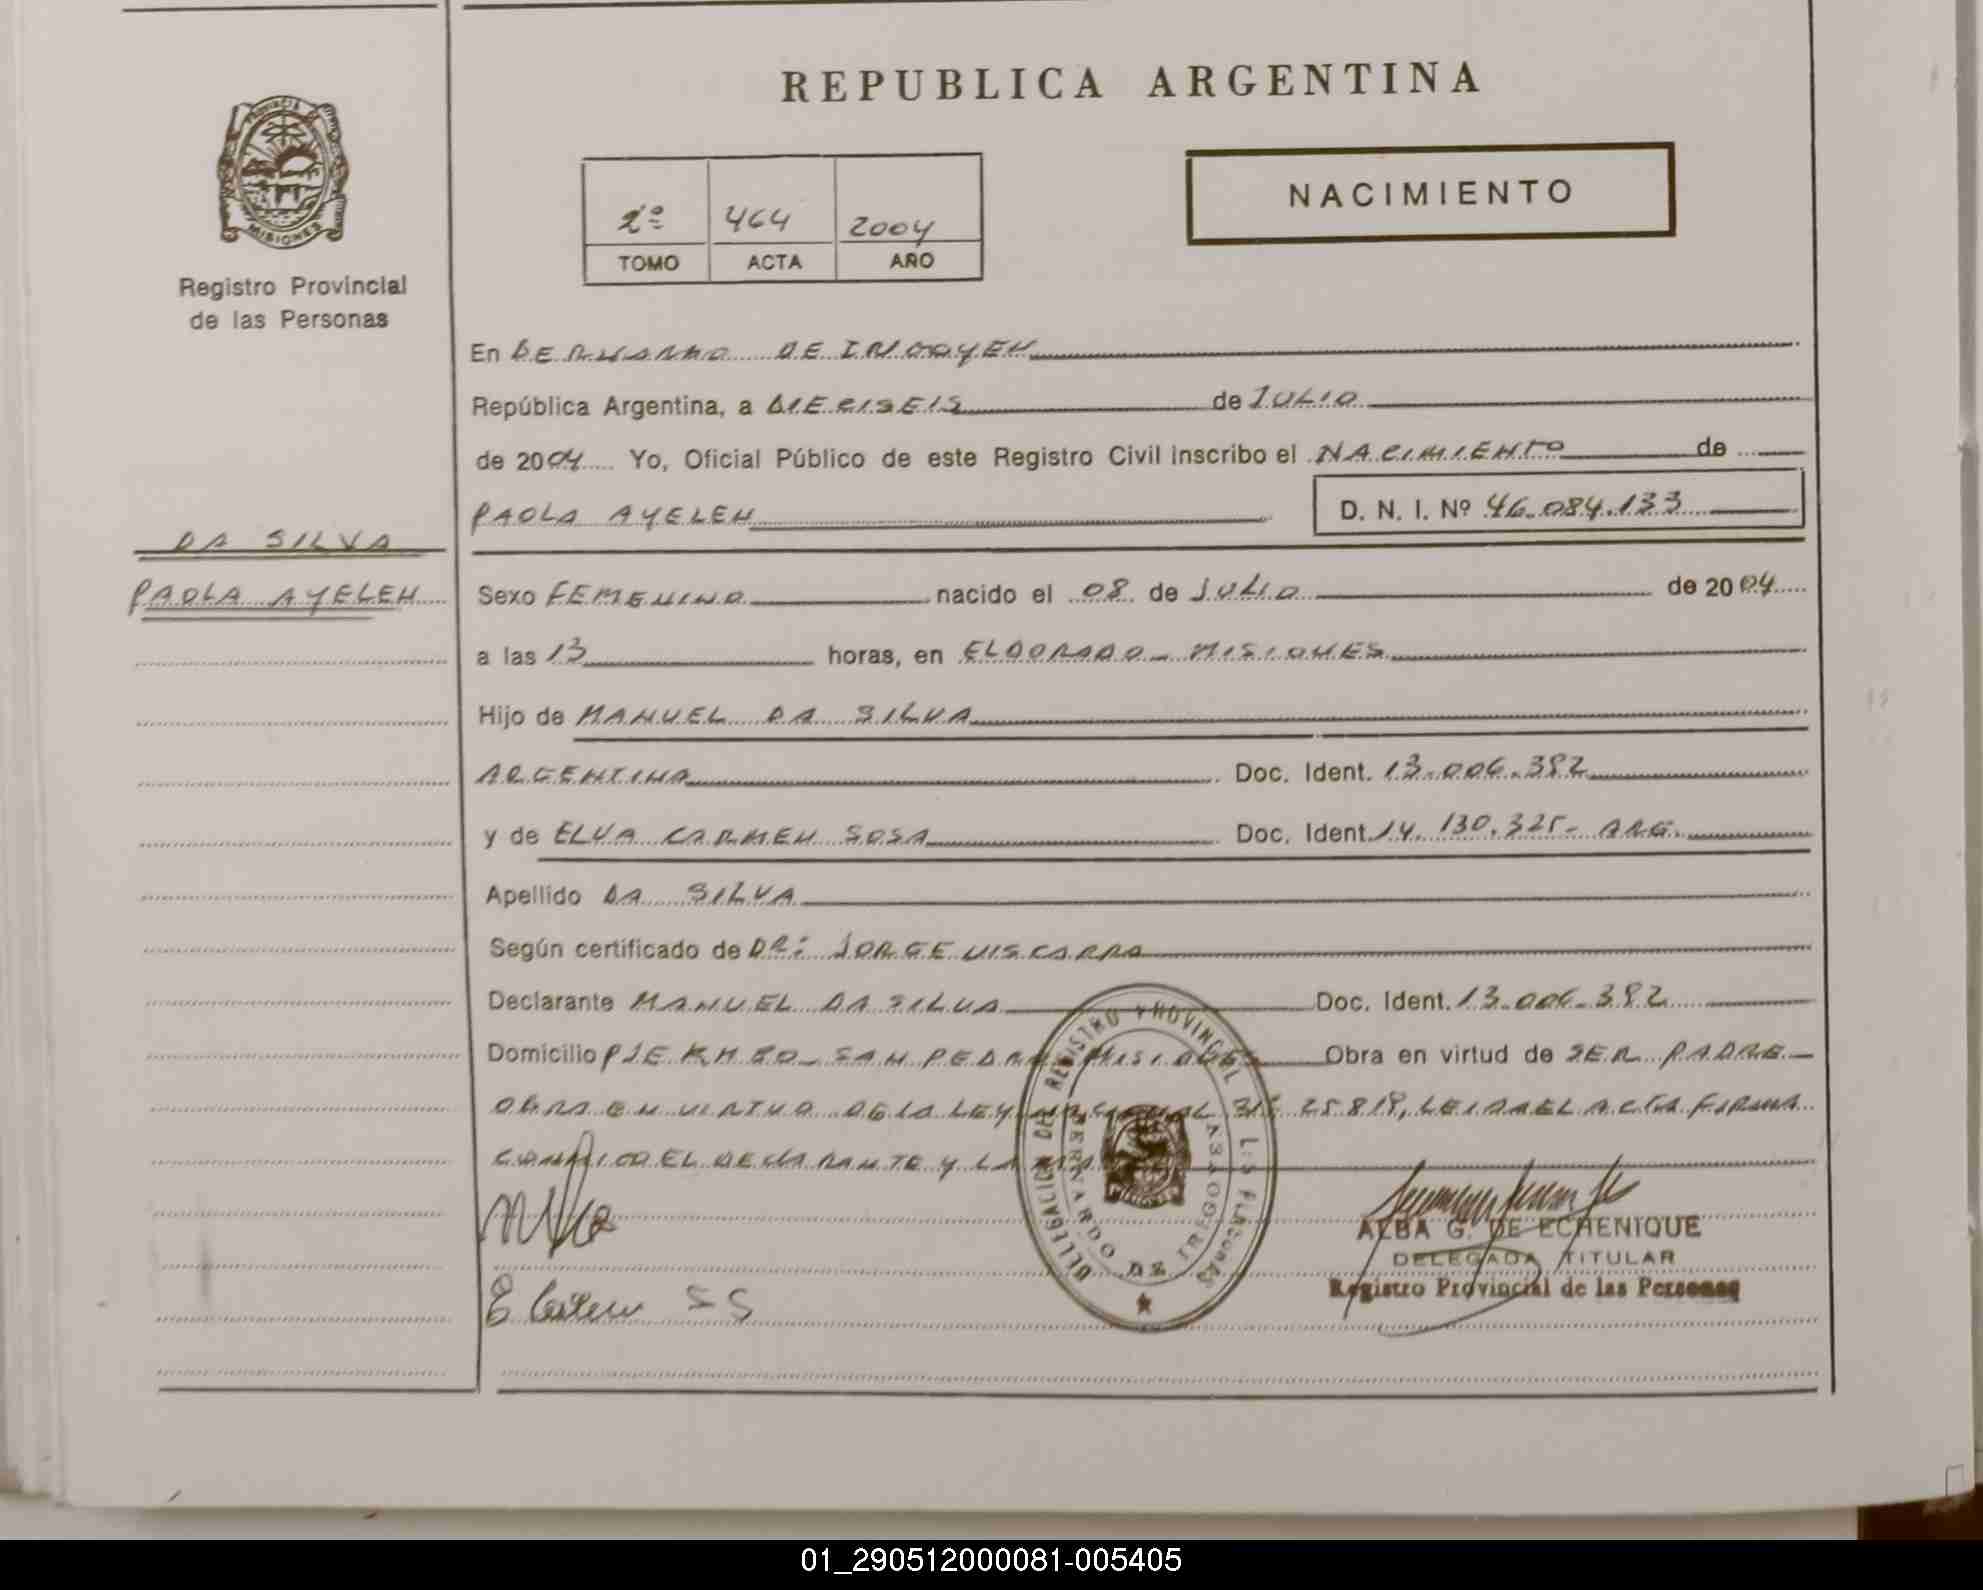 REPUBLICA ARGENTINA
PROVINCIA
MISIONES
Registro Provincial
de las Personas
2º 464 2004
TOMO ACTA AÑO
NACIMIENTO
En BERNARDO DE IRIGOYEN
República Argentina, a DIECISEIS de JULIO
de 2004 Yo, Oficial Público de este Registro Civil inscribo el NACIMIENTO de
PAOLA AYELEN D. N. I. Nº 46.084.133
DA SILVA
PAOLA AYELEN
Sexo FEMENINO nacido el 08 de JULIO de 2004
a las 13 horas, en ELDORADO - MISIONES
Hijo de MANUEL DA SILVA
ARGENTINA Doc. Ident. 13.006.382
y de ELVA CARMEN SOSA Doc. Ident. 14.130.325- ARG.
Apellido DA SILVA
Según certificado de DR: JORGE VISCARRA
Declarante MANUEL DA SILVA Doc. Ident. 13.006.382
Domicilio PJE KM 80 - SAN PEDRO MISIONES Obra en virtud de SER PADRE -
OBRA EN VIRTUD DE LA LEY NACIONAL Nº 25.819, LEIDA EL ACTA FIRMA
CONMIGO EL DECLARANTE Y LA
DELEGACION DEL REGISTRO PROVINCIAL DE LAS PERSONAS
BERNARDO DE IRIGOYEN
ALBA G. DE ECHENIQUE
DELEGADA TITULAR
Registro Provincial de las Personas
E Carmen S S
01_290512000081-005405